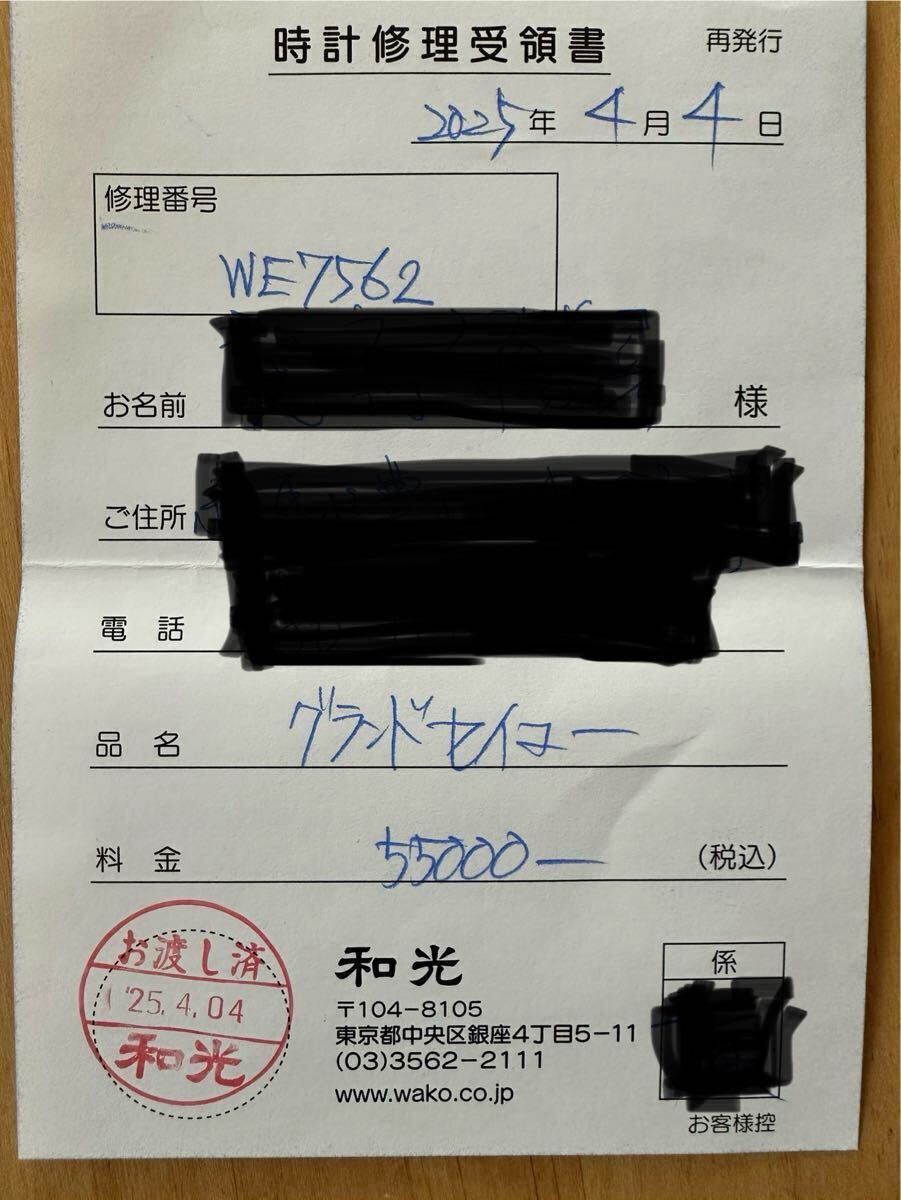 時計修理受領書
再発行
2025年4月4日
修理番号
WE7562
お名前 様
ご住所
電話
品名 グランドセイコー
料金 55000— (税込)
お渡し済
'25.4.04
和光
和光
〒104-8105
東京都中央区銀座4丁目5-11
(03)3562-2111
www.wako.co.jp
係
お客様控